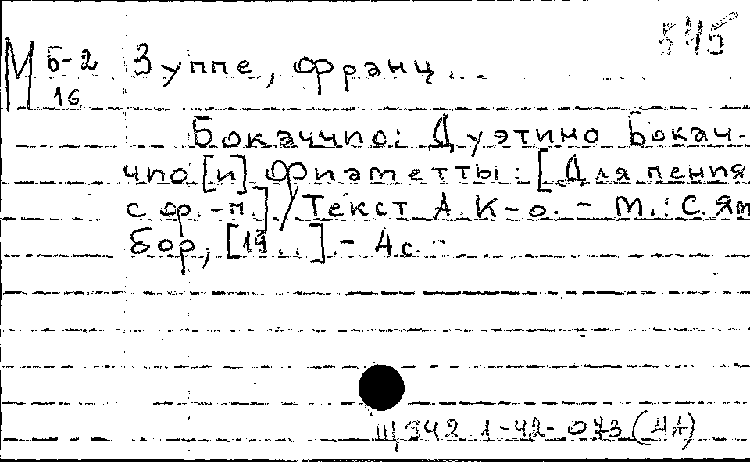 545
М Б-2 Зуппе, Франц.
16
Бокаччио: Дуэтино Бокач-
чио [и] Фиаметты: [Для пения
с ф.-п.] / Текст А. К-о. - М.: С. Ям
бор, [19..] - 4 с. -
Щ 942.1-42-073 (4А)